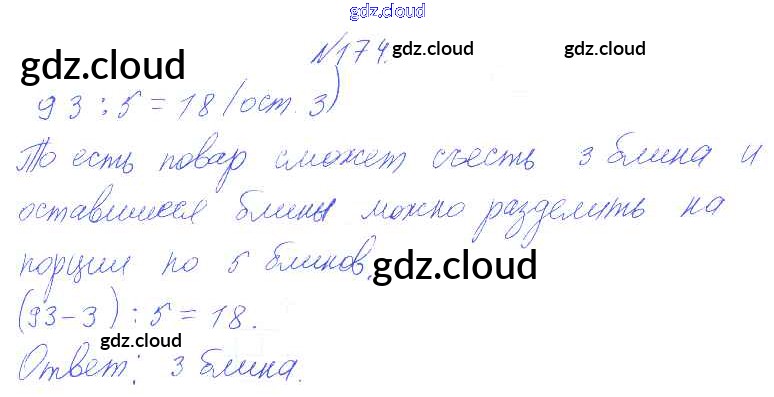 gdz.cloud
№174. gdz.cloud gdz.cloud
gdz.cloud
93 : 5 = 18 (ост. 3)
То есть повар сможет съесть 3 блина и
оставшиеся блины можно разделить на
порции по 5 блинов. gdz.cloud
(93-3) : 5 = 18.
gdz.cloud
Ответ: 3 блина.